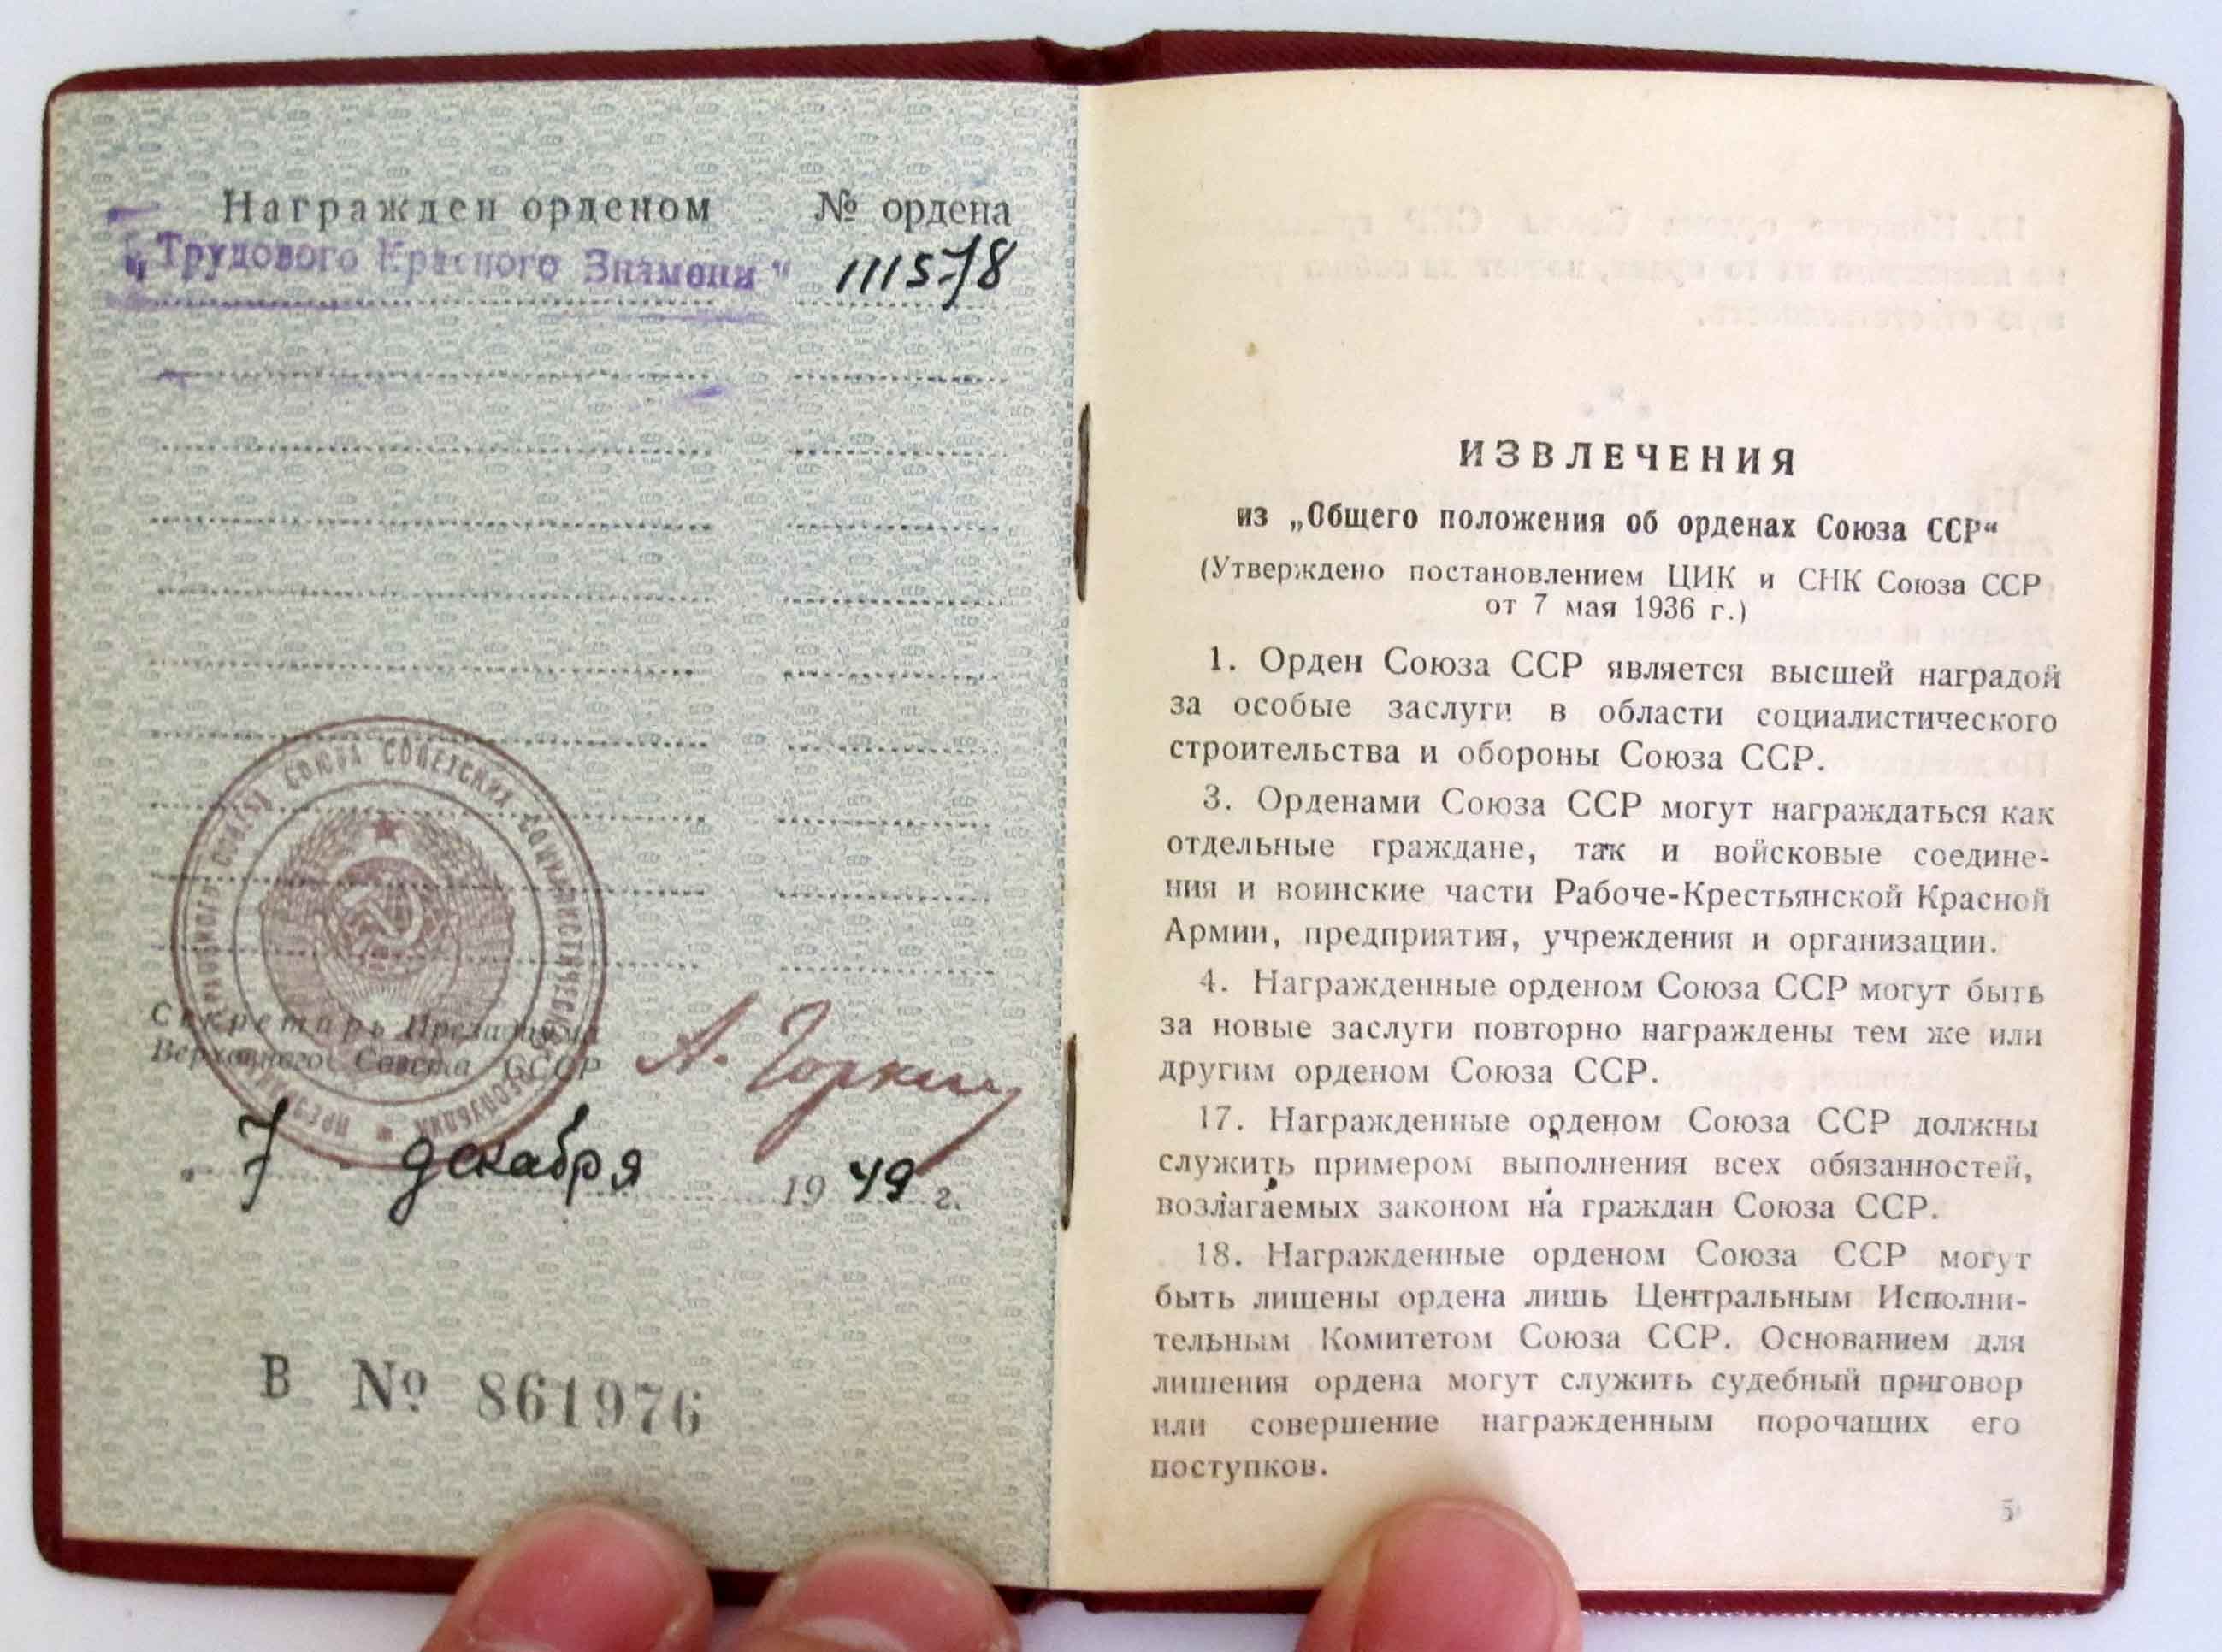 Награжден орденом № ордена
„Трудового Красного Знамени" 111578
СОЮЗА СОВЕТСКИХ СОЦИАЛИСТИЧЕСКИХ РЕСПУБЛИК
Секретарь Президиума
Верховного Совета СССР А. Горкин
„7 декабря 1949 г.
В № 861976
ИЗВЛЕЧЕНИЯ
из „Общего положения об орденах Союза ССР“
(Утверждено постановлением ЦИК и СНК Союза ССР
от 7 мая 1936 г.)
1. Орден Союза ССР является высшей наградой
за особые заслуги в области социалистического
строительства и обороны Союза ССР.
3. Орденами Союза ССР могут награждаться как
отдельные граждане, так и войсковые соедине-
ния и воинские части Рабоче-Крестьянской Красной
Армии, предприятия, учреждения и организации.
4. Награжденные орденом Союза ССР могут быть
за новые заслуги повторно награждены тем же или
другим орденом Союза ССР.
17. Награжденные орденом Союза ССР должны
служить примером выполнения всех обязанностей,
возлагаемых законом на граждан Союза ССР.
18. Награжденные орденом Союза ССР могут
быть лишены ордена лишь Центральным Исполни-
тельным Комитетом Союза ССР. Основанием для
лишения ордена могут служить судебный приговор
или совершение награжденным порочащих его
поступков.
5